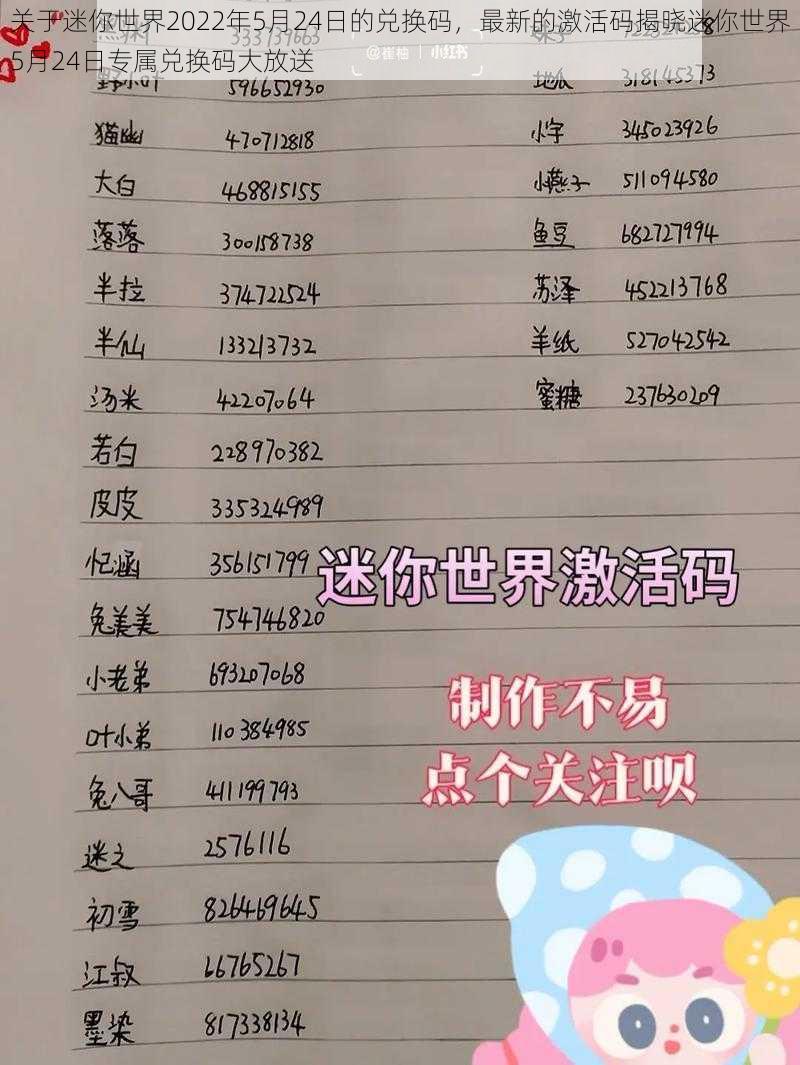 关于迷你世界2022年5月24日的兑换码，最新的激活码揭晓迷你世界
5月24日专属兑换码大放送
@崔柚 | 小红书
野小叶 596652930
猫幽 470712818
大白 468815155
落落 300158738
半拉 374722524
半仙 133213732
汤米 42207064
若白 228970382
皮皮 335324989
忆涵 356151799
兔美美 754746820
小老弟 693207068
叶小弟 110384985
兔八哥 411199793
迷之 2576116
初雪 826469645
江叔 66765267
墨染 817338134
地瓜 318145373
小字 345023926
小燕子 511094580
鱼豆 682727994
苏泽 452213768
羊纸 527042542
蜜糖 237630209
迷你世界激活码
制作不易
点个关注呗